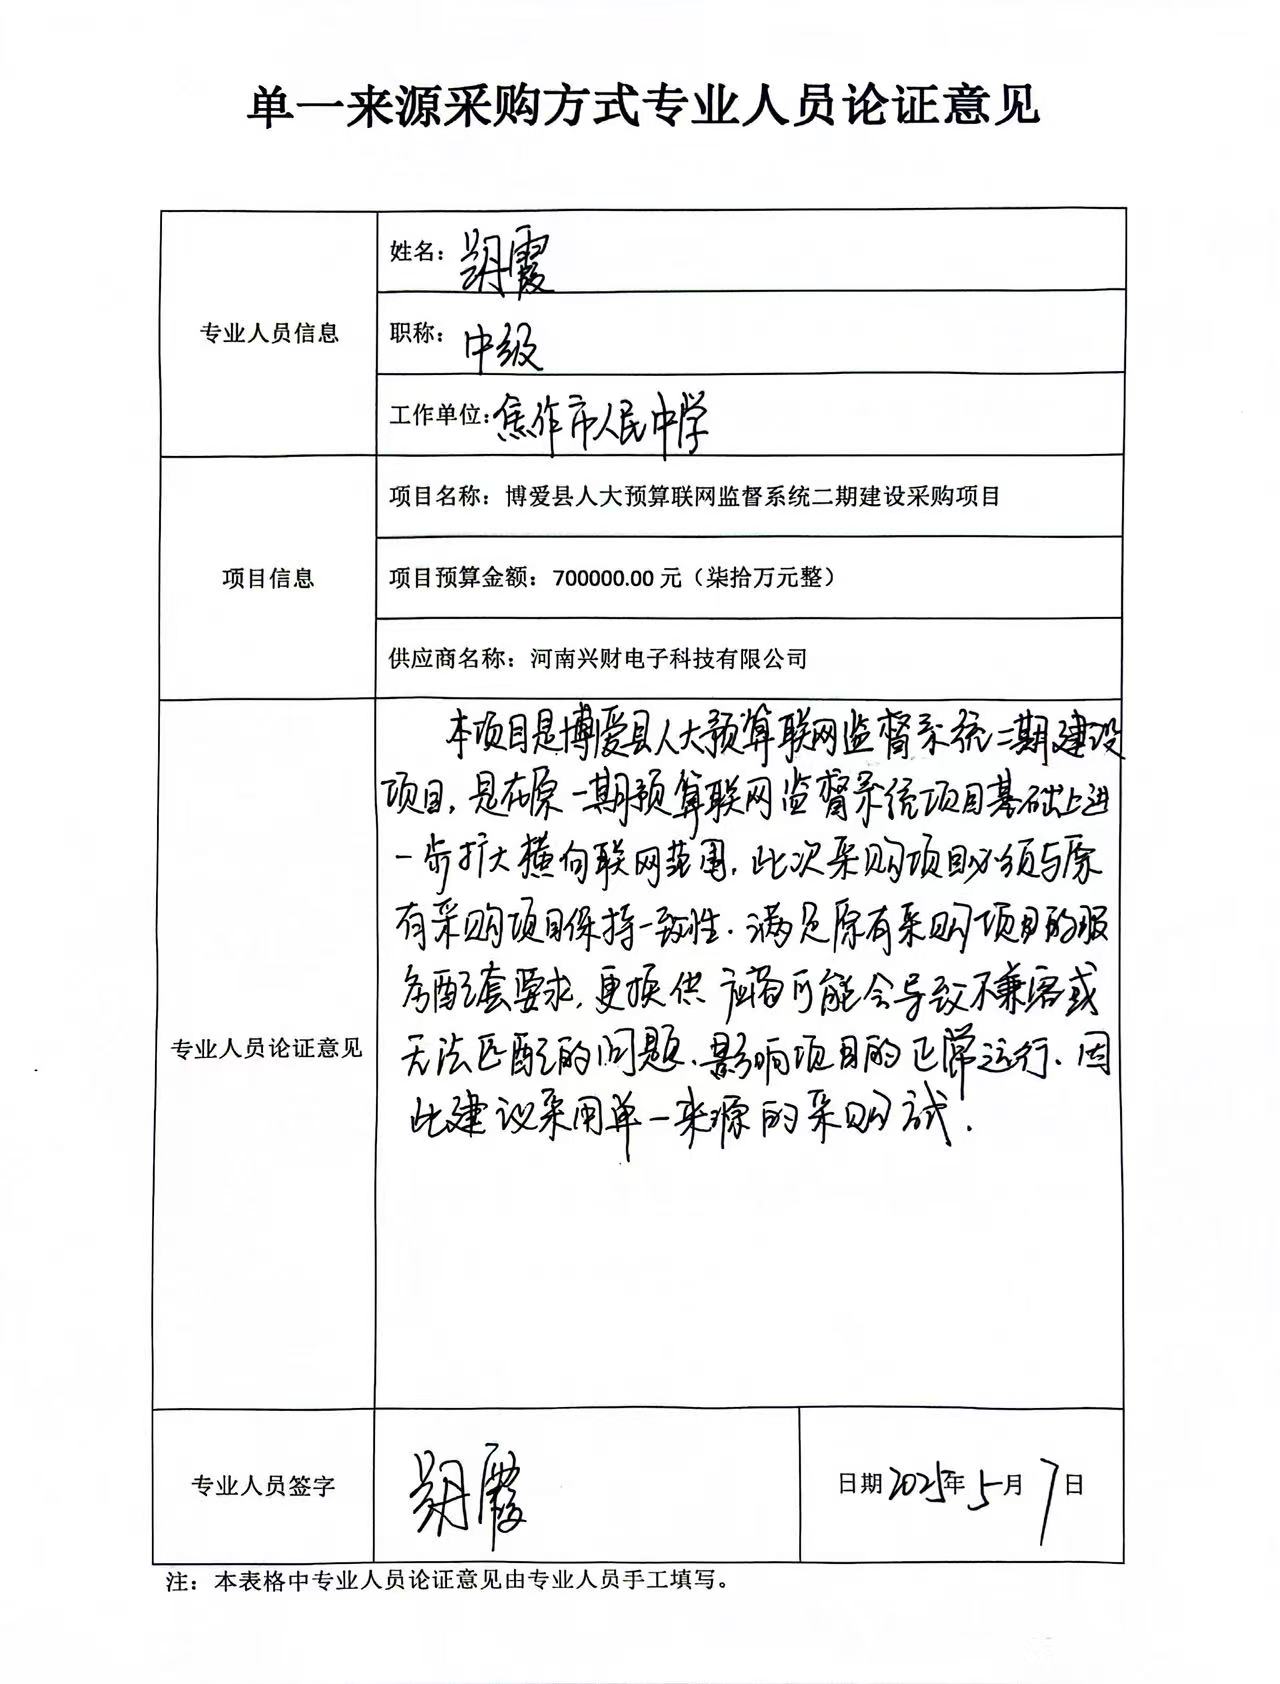 单一来源采购方式专业人员论证意见
专业人员信息
姓名：霞
职称：中级
工作单位：焦作市人民中学
项目信息
项目名称：博爱县人大预算联网监督系统二期建设采购项目
项目预算金额：700000.00元（柒拾万元整）
供应商名称：河南兴财电子科技有限公司
专业人员论证意见
本项目是博爱县人大预算联网监督系统二期建设
项目，是在原一期预算联网监督系统项目基础上进
一步扩大横向联网范围，此次采购项目必须与原
有采购项目保持一致性．满足原有采购项目的服
务配套要求，更换供应商可能会导致不兼容或
无法匹配的问题、影响项目的正常运行、因
此建议采用单一来源的采购方式．
专业人员签字
霞
日期2025年5月7日
注：本表格中专业人员论证意见由专业人员手工填写。